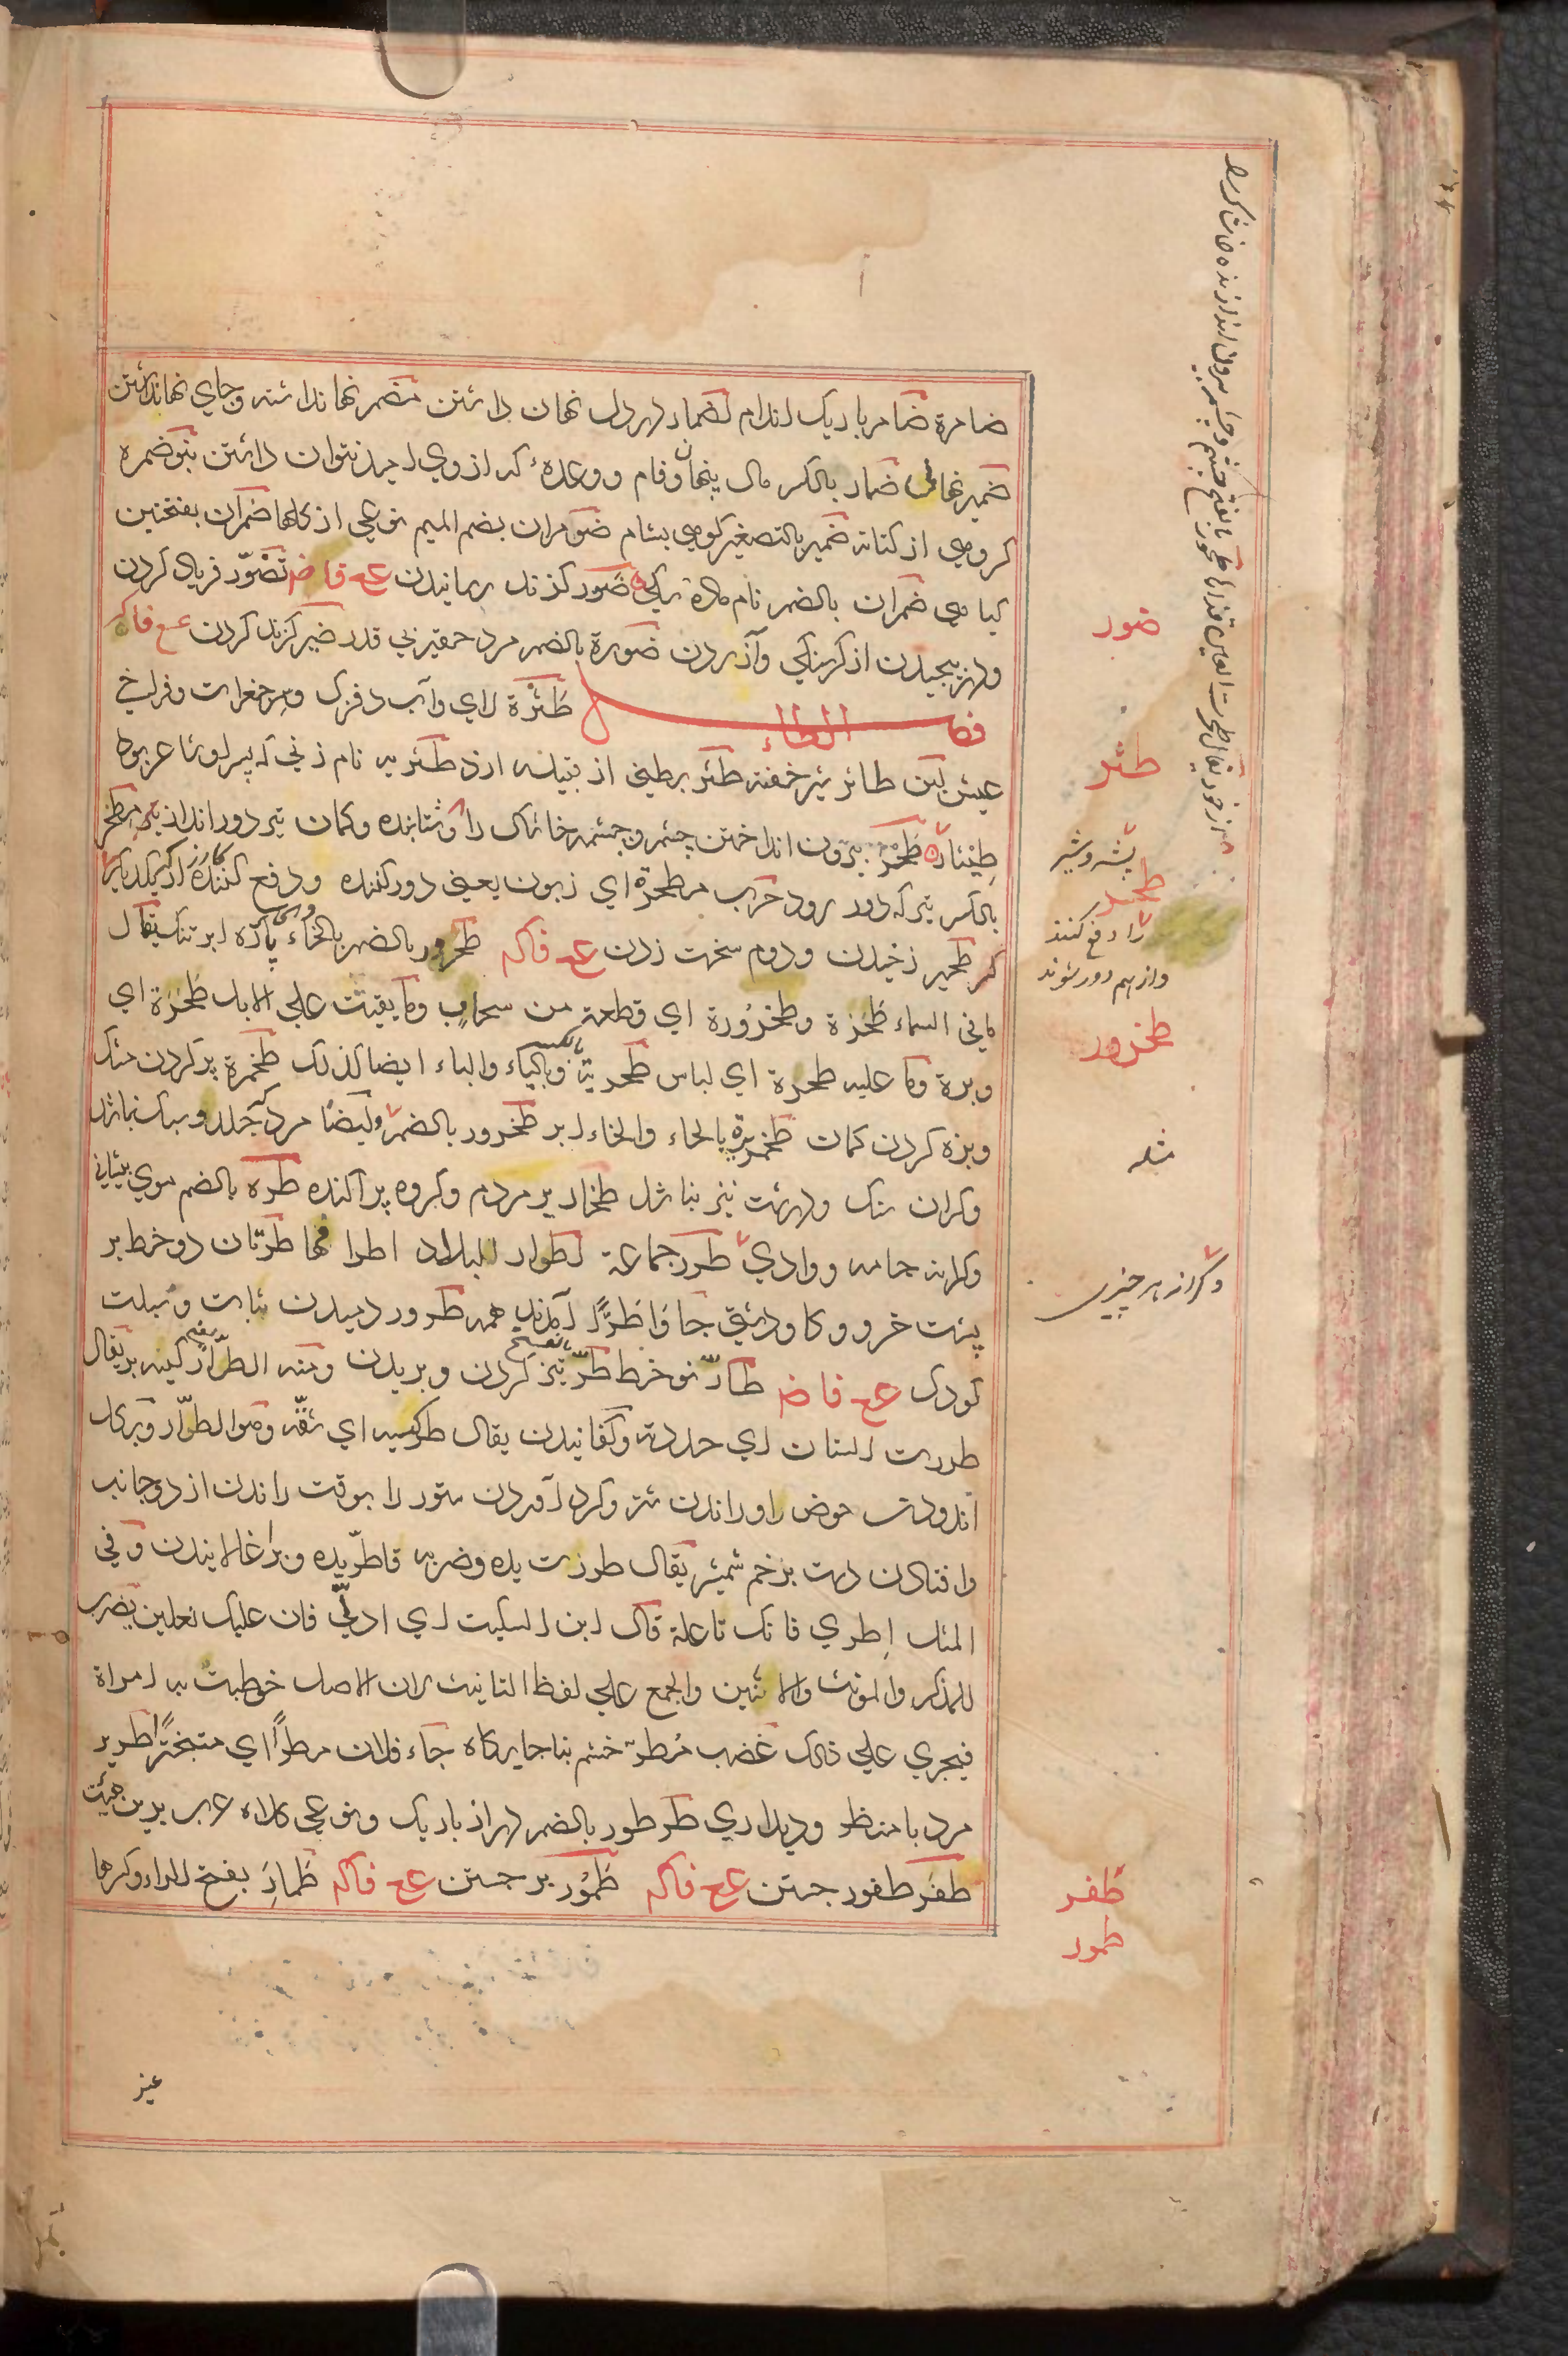 ضامرة ضامر باریک اندام اضمار در دل نهان داشتن مضمر نهانداشته وجای نهانداشتن
ضمیر نهانی ضمار بالکسر مال پنهان وفام ووعدهٔ که ازوی امید نتوان داشتن بنو ضمره
کروهی از کنانه ضمیر بالتصغیر کوهی بشام ضومران بضم المیم نوعی از کلها ضمران بفتحتین
کیاهی ضمران بالضم نام ماده سکی ضور کزند رسانیدن ع فاض تضور فریاد کردن
ودرپیچیدن از کرسنکی وآزردن ضورة بالضم مرد حقیر بی قدر ضیر کزند کردن ع فاک
فصل الطاء طثرة لای وآب دفزک وسر جغرات وفراخ
عیش لبن طاثر شیر خفته طثر بطنی از قبیله ازد طثریه نام زنی که پسر اوشاعر بود
طیثار طحر بیرون انداختن چشم وچشمه خاشاک را وشتابنده وکمان تیر دور انداز مطحر
بالکسر تیر که دور رود حرب مطحرة ای زبون یعنی دور کننده ودفع کننده
طحیر زخیدن ودوم سخت زدن ع فاک طحرور بالضم بالخاء پاره ابر تنک یقال
ما فی السماء طحرة وطحرورة ای قطعة من سحاب وما بقیت علی الابل طحرة ای
وبرة وما علیه طحرة ای لباس طحریة وبالیاء والباء ایضا کذلک طحمرة پر کردن مشک
وبزه کردن کمان طخمریرة بالحاء والخاء ابر طخرور بالضم وایضا مرد که جلد وسبک نباشد
وکران سنک ودرشت نیز نباشد طخاریر مردم وکروه پراکنده طره بالضم موی پیشانی
وکرانه جامه ووادی طرر جماعة اطرار البلاد اطرافها طرتان دو خط بر
پشت خر وکاو دشتی جاؤا طرا ای آمدند همه طرور دمیدن نبات وسبلت
کودک ع فاض طار نو خط طر تیز کردن وبریدن ومنه الطرار کیسه بر یقال
طررت السنان ای حددته وکفانیدن یقال طر کیسه ای شقه وهو الطرار وبکل
اندودن حوض را وراندن شتر وکرد آمدن ستور را بوقت راندن از دو جانب
وافتادن دست بزخم شمشیر یقال طرت یده وضربه فاطر یده وبراغالانیدن وفی
المثل اطری فانک ناعلة قال ابن السکیت ای ادلی فان علیک نعلین یضرب
للمذکر والمونث والاثنین والجمع علی لفظ التانیث لان الاصل خوطبت به امراة
فیجری علی ذلک غضب مطر خشم بناجایکاه جاء فلان مطرا ای متبخترا طریر
مرد با منظر ودیداری طرطور بالضم دراز باریک ونوعی کلاه عرب بدین هیئت
طفر طفور جستن ع فاک طمور بر جستن ع فاک طمار بفتح الراء وکسرها
ضور
طثر
طحر
را دفع کنند
واز هم دور شوند
طخرور
مثله
وکرانه هر چیزی
طفر
طمور